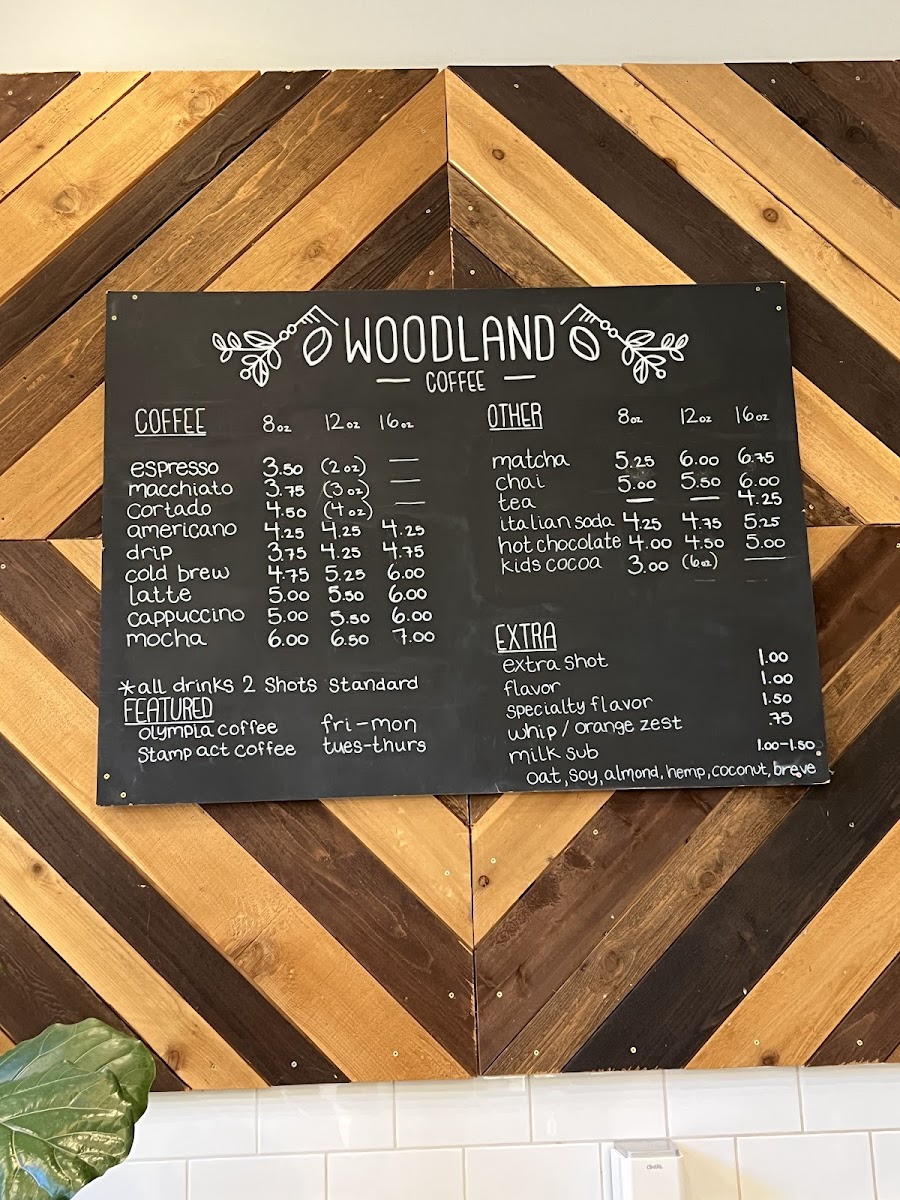 WOODLAND
COFFEE
COFFEE 8oz 12oz 16oz
espresso 3.50 (2oz) —
macchiato 3.75 (3oz) —
cortado 4.50 (4oz) —
americano 4.25 4.25 4.25
drip 3.75 4.25 4.75
cold brew 4.75 5.25 6.00
latte 5.00 5.50 6.00
cappuccino 5.00 5.50 6.00
mocha 6.00 6.50 7.00
*all drinks 2 shots standard
FEATURED
olympia coffee fri-mon
Stamp act coffee tues-thurs
OTHER 8oz 12oz 16oz
matcha 5.25 6.00 6.75
chai 5.00 5.50 6.00
tea — — 4.25
italian soda 4.25 4.75 5.25
hot chocolate 4.00 4.50 5.00
kids cocoa 3.00 (6oz) —
EXTRA
extra shot 1.00
flavor 1.00
specialty flavor 1.50
whip / orange zest .75
milk sub 1.00-1.50
oat, soy, almond, hemp, coconut, breve